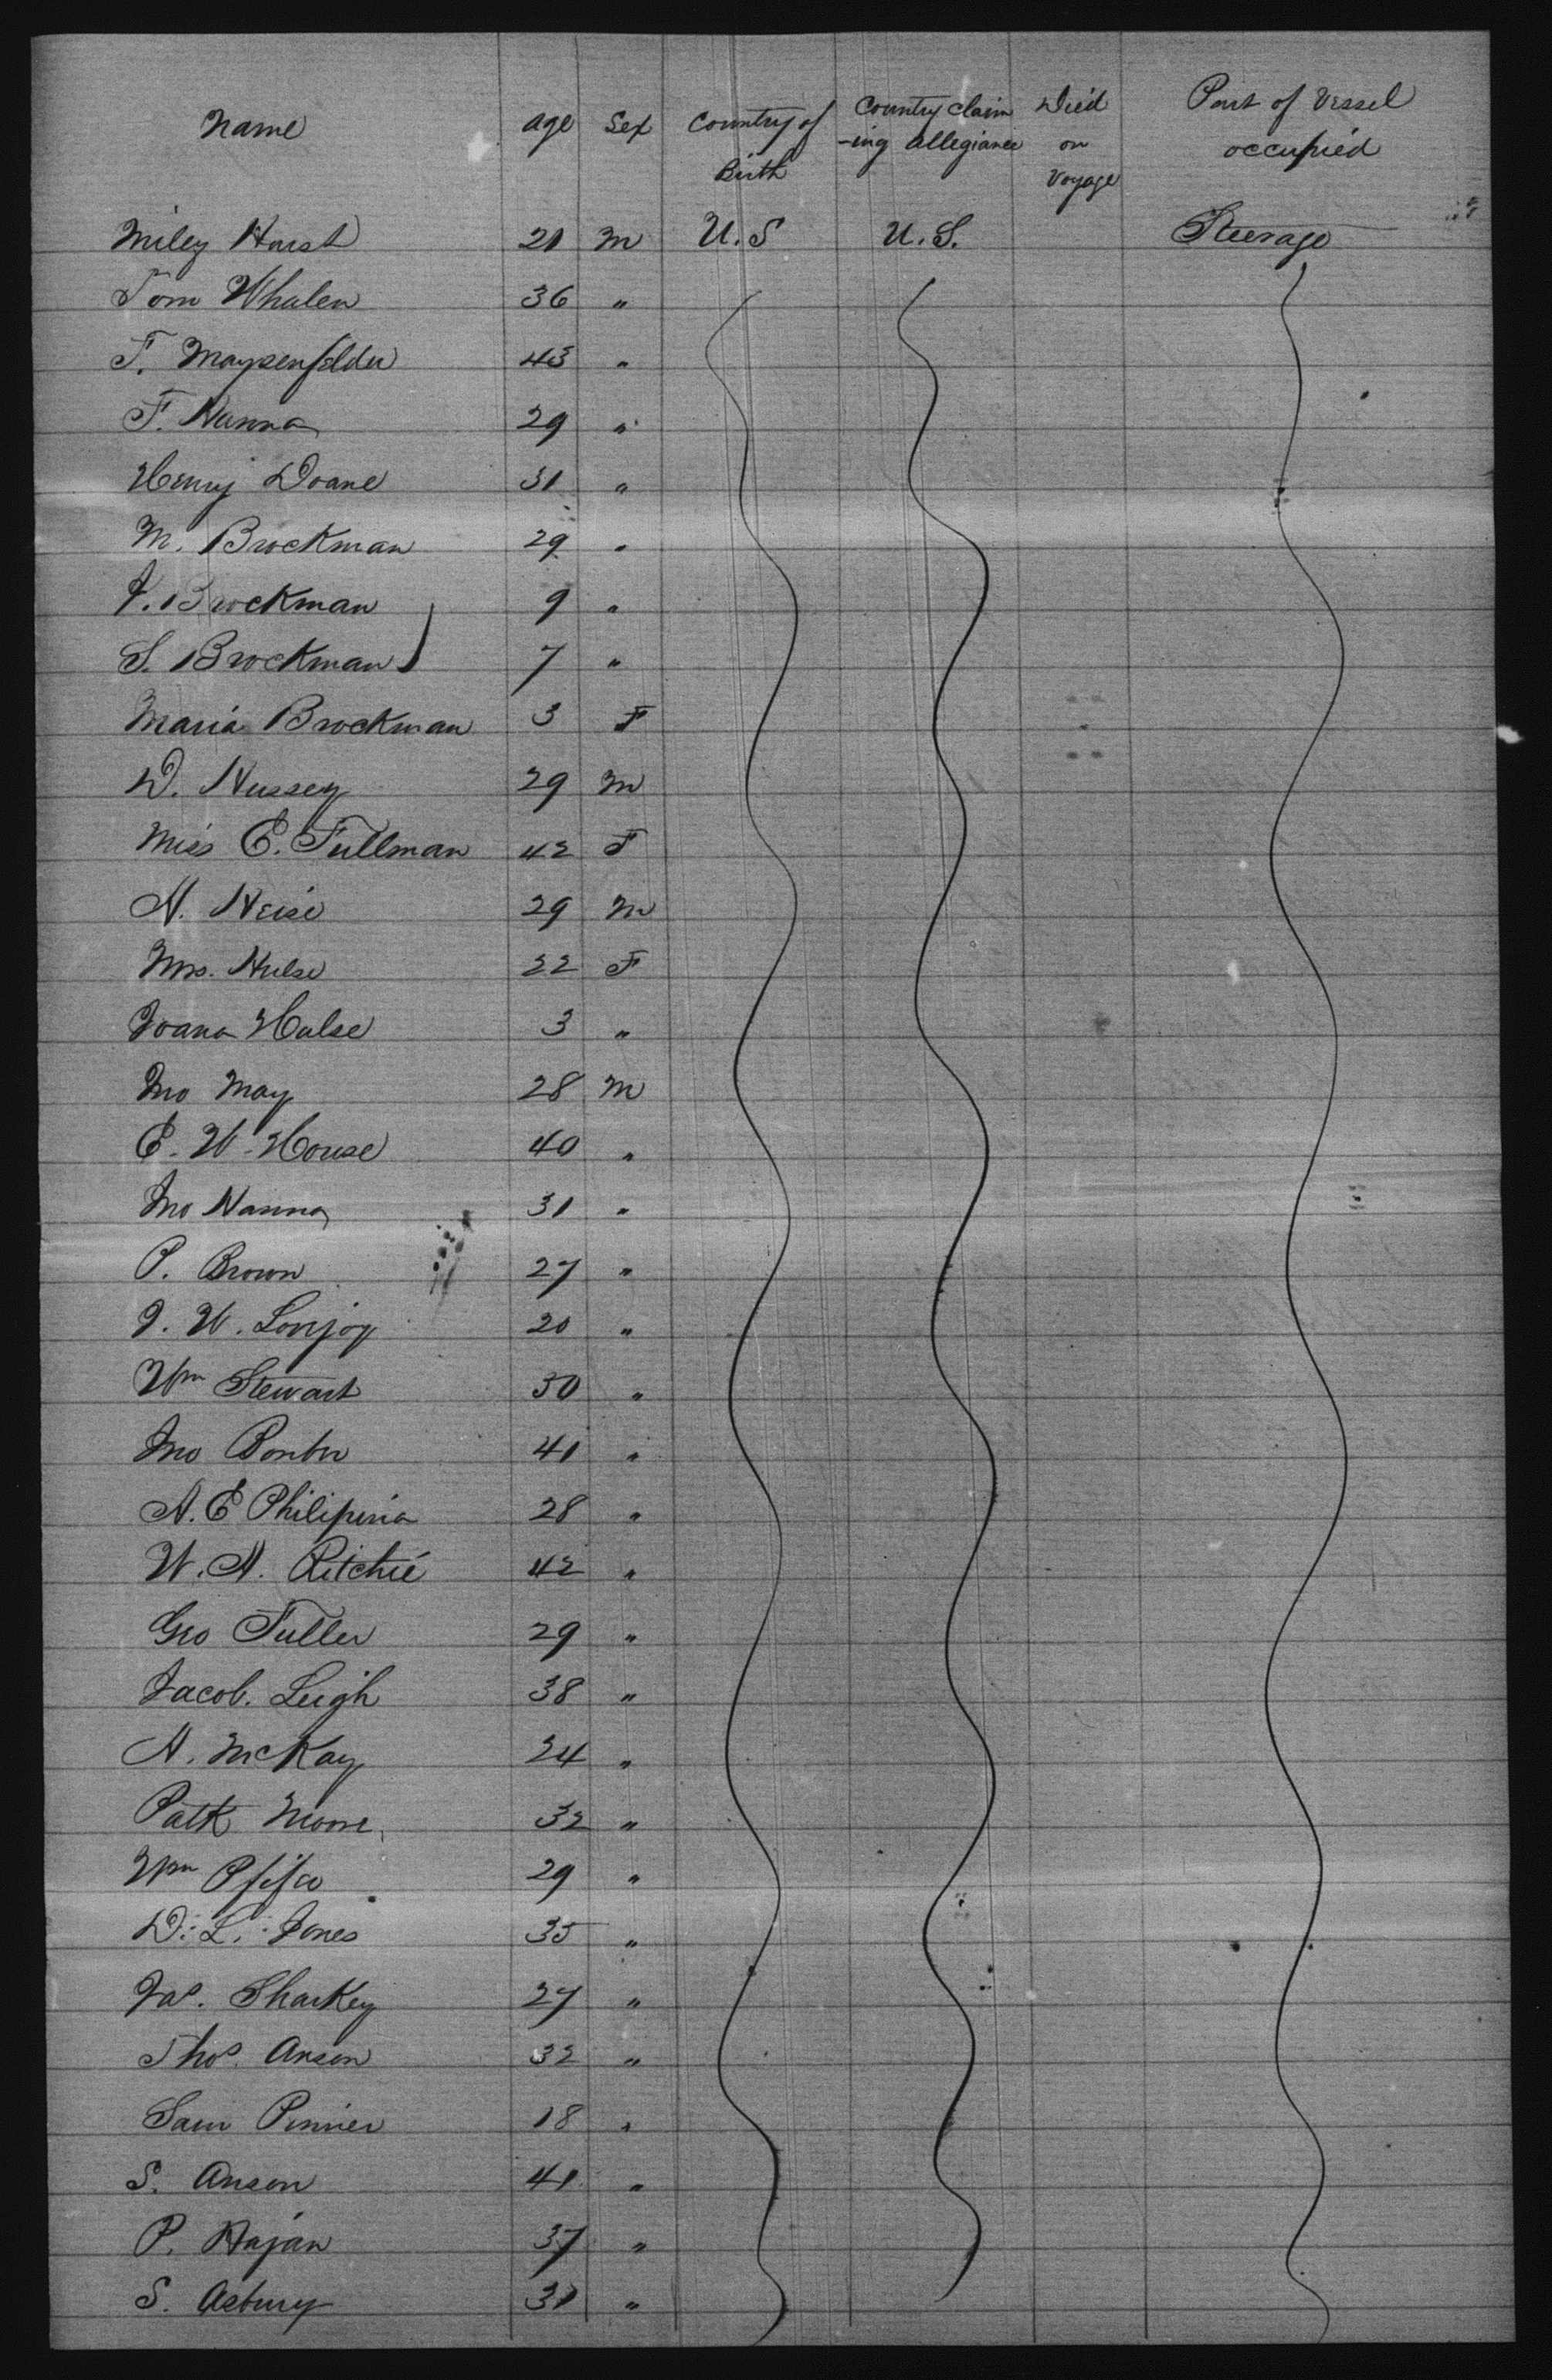 Name Age Sex Country of Birth Country Claim-ing Allegiance Died on Voyage Part of Vessel occupied
Miley Hurst 21 M U.S U.S. Steerage
Tom Whalen 36 "
F. Maysenfelder 43 "
F. Hanna 29 "
Henry Doane 31 "
M. Brockman 29 "
J. Brockman 9 "
S. Brockman 7 "
Maria Brockman 3 F
D. Hussey 29 M
Miss E. Fullman 42 F
H. Heise 29 M
Mrs. Hulse 22 F
Joana Hulse 3 "
Jno May 28 M
E. W. House 40 "
Jno Hanna 31 "
P. Brown 27 "
J. W. Lovejoy 20 "
Wm Stewart 30 "
Jno 41 "
A. E Philipina 28 "
W. A. Ritchie 42 "
Geo Fuller 29 "
Jacob. Leigh 38 "
A. McKay 24 "
Patk Moore 32 "
Wm 29 "
D. L. Jones 35 "
Jas. Sharkey 27 "
Thos. Anson 32 "
Sam Pinner 18 "
S. Anson 41 "
P. Hajan 37 "
S. Asbury 31 "